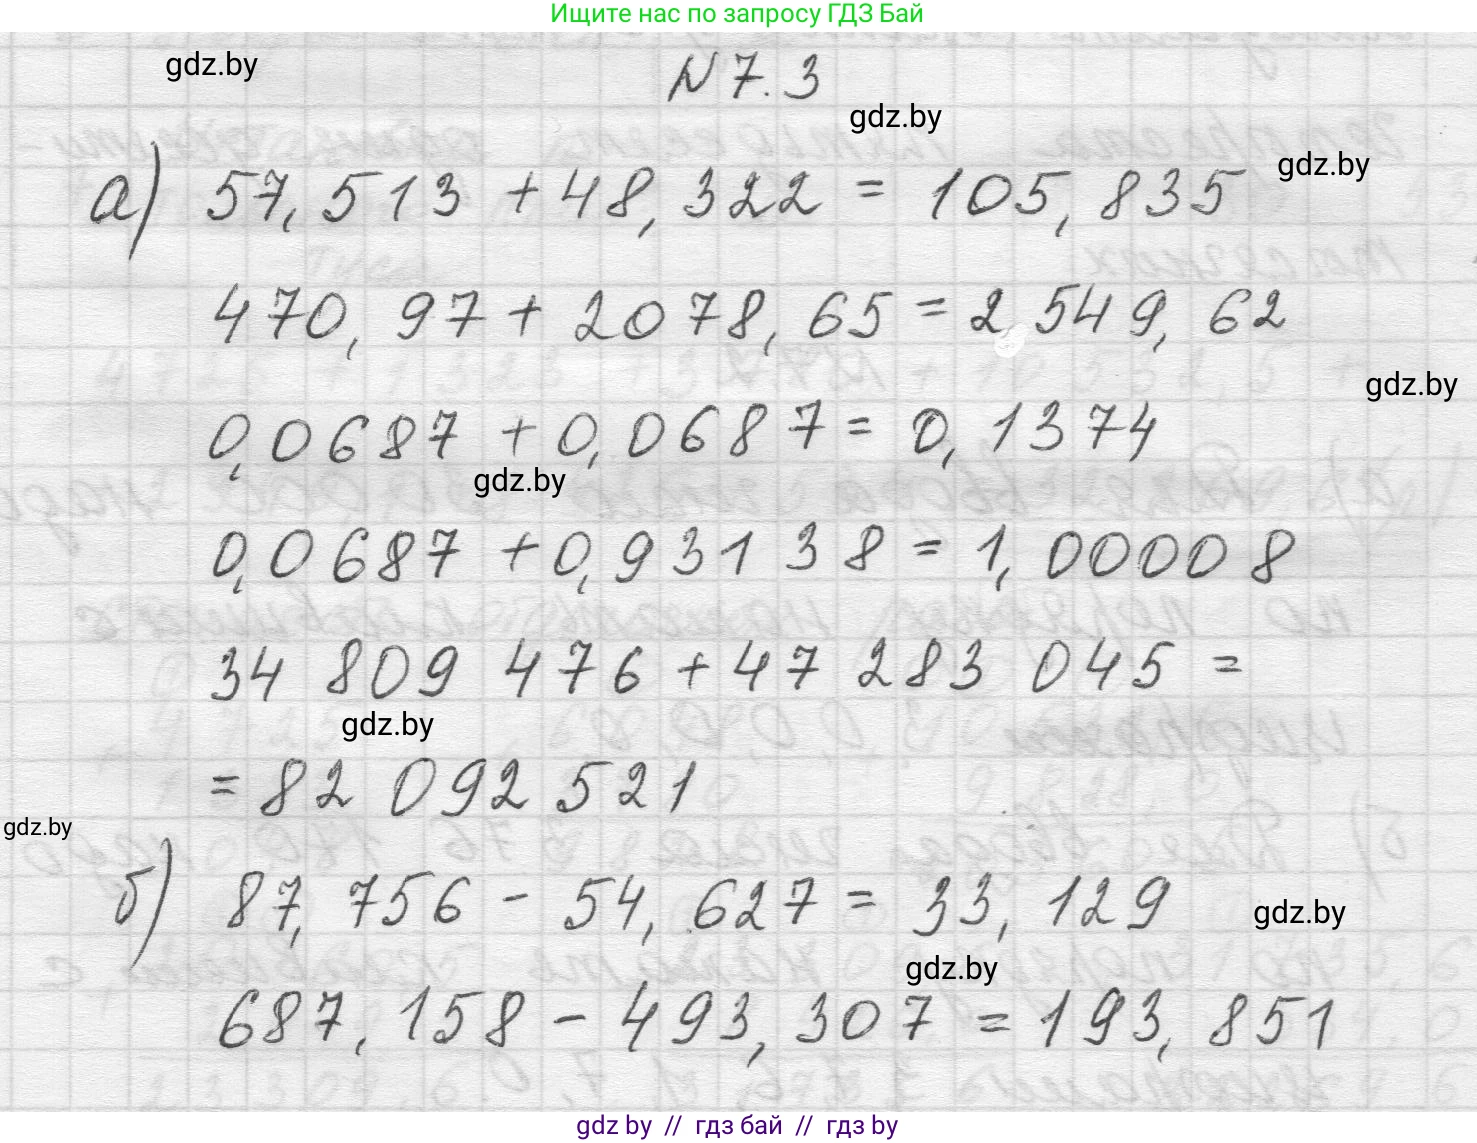 Ищите нас по запросу ГДЗ Бай
gdz.by
N 7.3
gdz.by
gdz.by
а) 57,513 + 48,322 = 105,835
470,97 + 2078,65 = 2 549,62
gdz.by
0,0687 + 0,0687 = 0,1374
gdz.by
0,0687 + 0,93138 = 1,00008
34 809 476 + 47 283 045 =
gdz.by
= 82 092 521
gdz.by
б) 87,756 - 54,627 = 33,129
gdz.by
gdz.by
687,158 - 493,307 = 193,851
gdz by // гдз бай // гдз by